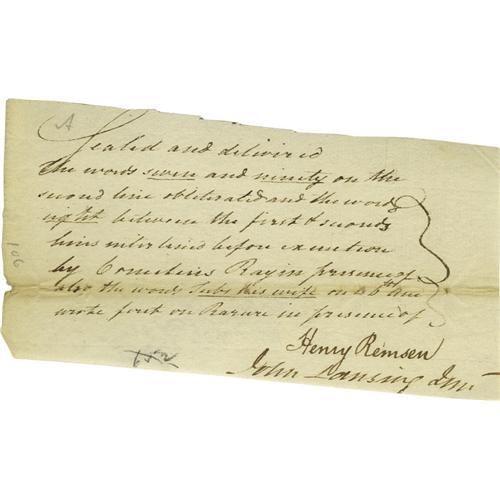 A
Sealed and delivered
the words seven and ninety on the
second line obliterated and the words
eight between the first & second
lines interlined before execution
by Cornelius Ray in presence of
also the word Subs this wife on 26th line
wrote fort on Rasure in presence of
Henry Remsen
John Lansing Junr
106